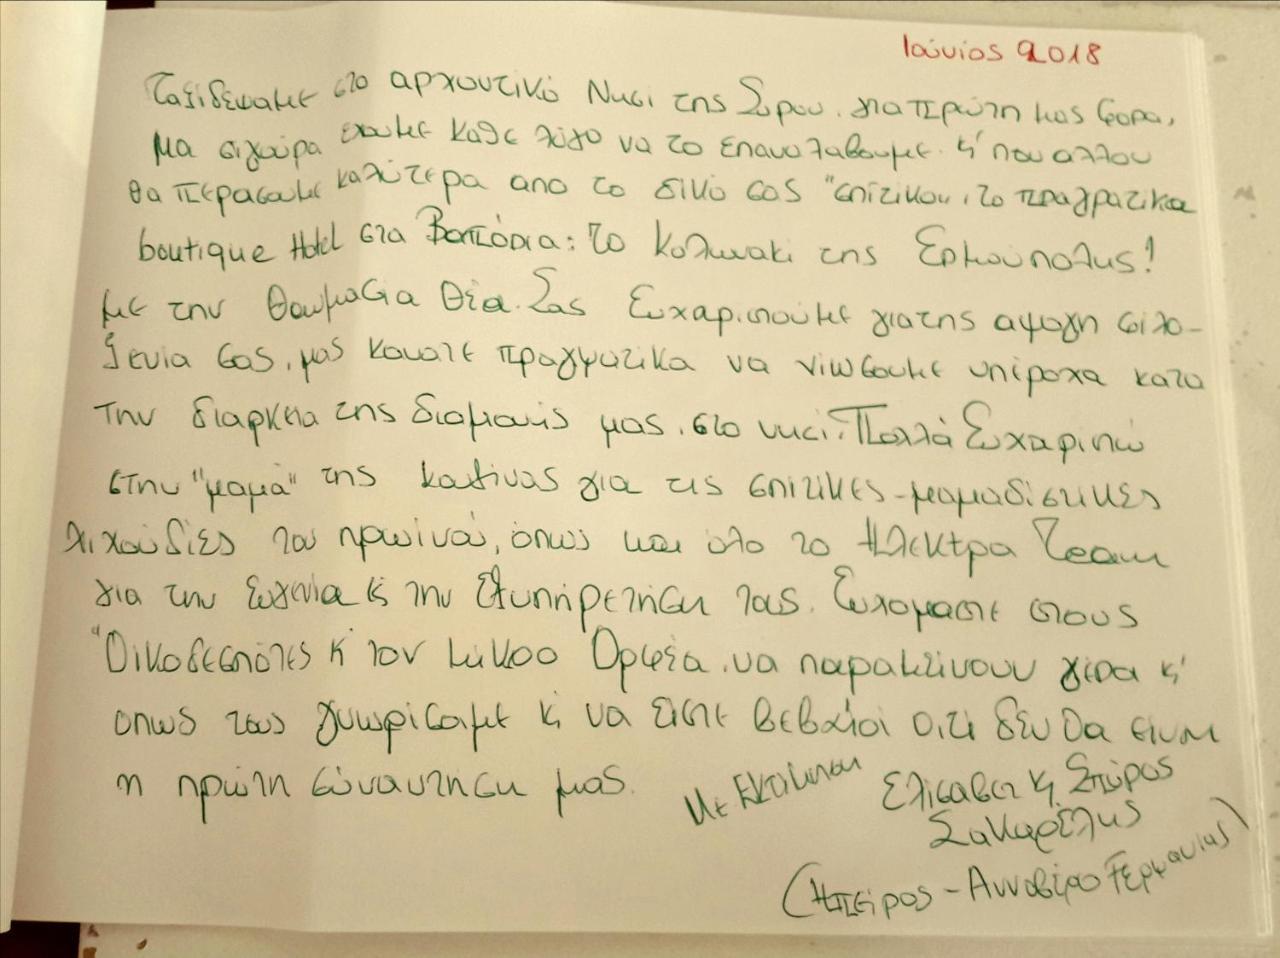 Ιούνιος 2018
Ταξιδεψαμε στο αρχοντικό Νησι της Συρου. για πρώτη μας φορα,
Μα σιγουρα εχουμε καθε λόγο να το επαναλαβουμε. κ' που αλλου
θα περασουμε καλύτερα απο το δικό σας "σπιτικου, το πραγματικα
boutique Hotel στα Βαπόρια: το κολωνακι της Ερμούπολης!
με την θαυμασια θέα. Σας Ευχαριστούμε για της αψογη φιλο-
ξενία σας, μας κανατε πραγματικα να νιωσουμε υπέροχα κατα
την διαρκεια της διαμονής μας, στο νησι. Πολλά Ευχαριστώ
στην "μαμά" της για τις σπιτικες-μαμαδίστικες
λιχουδιές του πρωϊνού, όπως και όλο το Ηλεκτρα Team
για την Ευγενια κ την Εξυπηρετηση τους. Ευχομαστε στους
"Οικοδεσπότες κ τον μικρο Ορφέα, να παραμείνουν γέρα κ'
οπως τους γνωρισαμε κ να ειστε βεβαιοι οτι δεν θα ειναι
η πρώτη συναντηση μας.
Με Εκτιμηση
Ελισαβετ κ. Σπύρος
Σακαρέλης
(Ηπείρος - Αννοβέρο Γερμανιας)